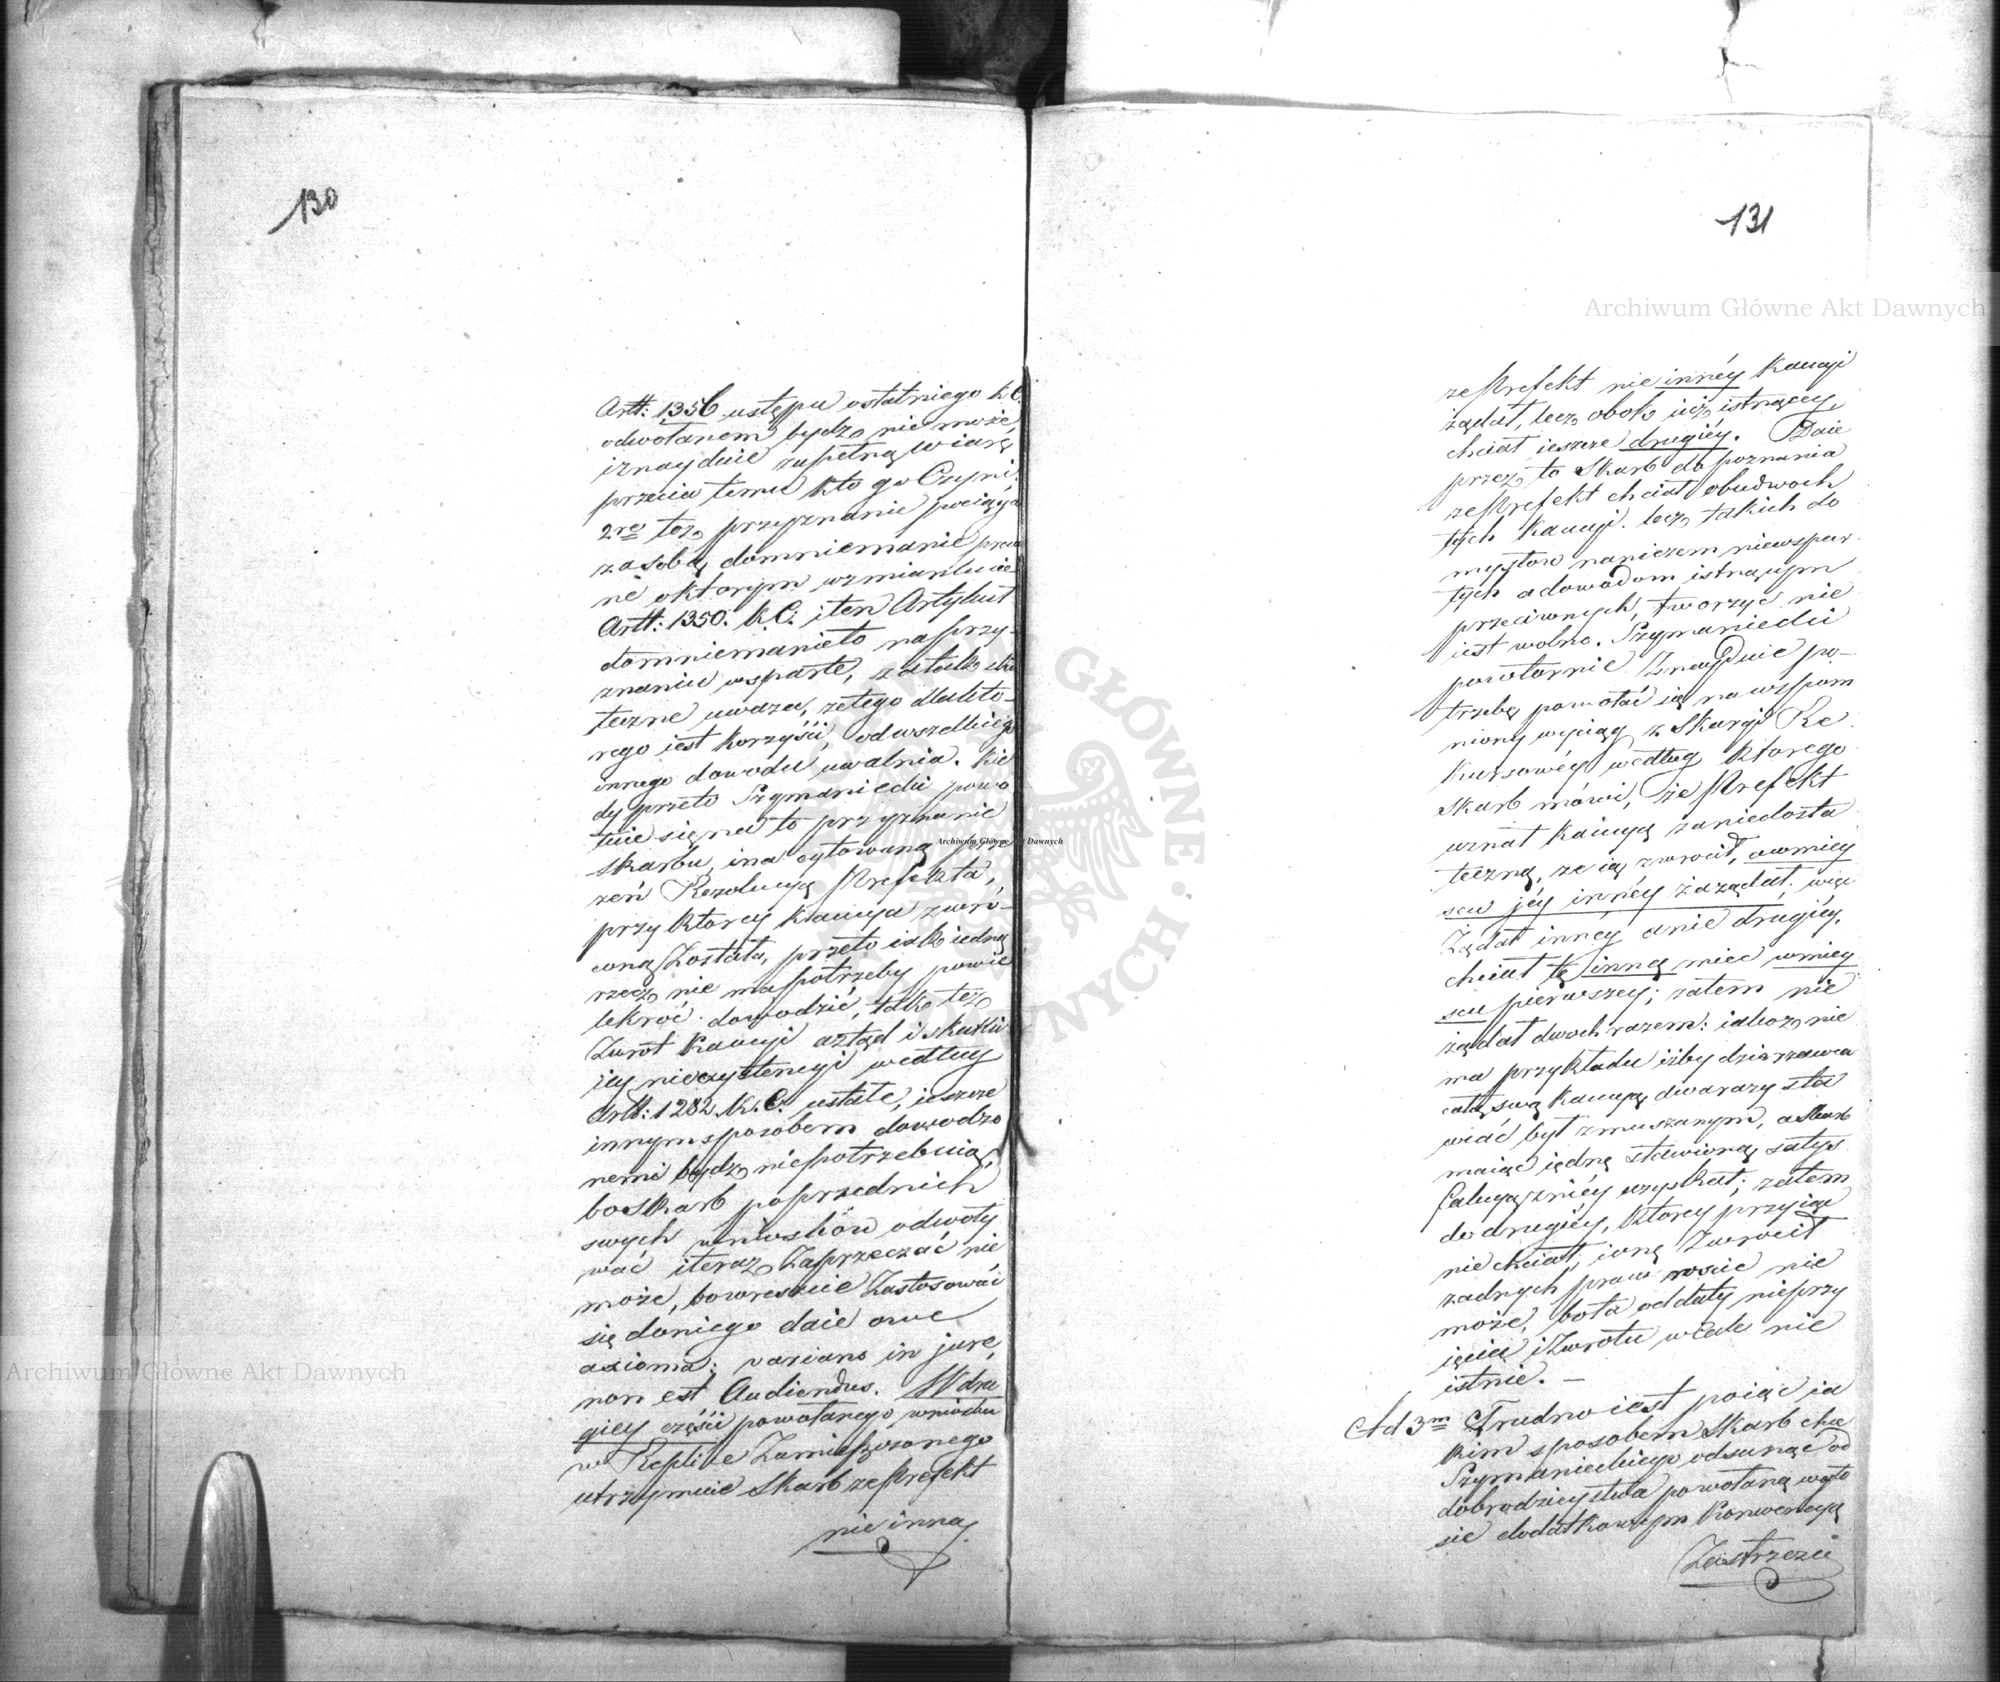 130
Artt: 1356 ustępu ostatniego K C.
odwołanem bydź nie może
i znayduie zupełną wiarę
przeciw temu kto go Czyni.
2re toż przyznanie pociąga
za sobą domniemanie praw
ne o którym wzmiankuie
Artt: 1350. K.C. i ten Artykuł
domniemanie to na przy-
znaniu wsparte, za tak sku
teczne uważa, że tego dla któ-
rego iest korzyści, od wszelkiego
innego dowodu uwalnia. Kie
dy przeto Szymaniecki powo
łuie się na to przyznanie
Skarbu, i na cytowaną
Rezolucyą Prefekta,
przy którey Kaucya zwró-
coną Została, przeto iak iedną
rzecz nie ma potrzeby powie
lekroć dowodzić, tak też
Zwrot Kaucyi ztąd i skutki
iey nieexystencyi według
Artt: 1282. K.C. ustałe, ieszcze
innym sposobem dowodzo
nemi bydź niepotrzebuią,
bo Skarb poprzednich
swych wniosków odwoły
wać i teraz Zaprzeczać nie
może, bo wreszcie Zastosować
się do niego daie owe
axioma: varians in jure,
non est Audiendus. W dru
giey części powołanego wniosku
w Replice Zamieszczonego
utrzymuie Skarb że Prefekt
nie inną
131
że Prefekt nie innéy Kaucyi
żądał, lecz obok iuż istnącey,
chciał ieszcze drugiéy. Daie
przez to Skarb do poznania
że Prefekt chciał obudwóch
tych Kaucyi. lecz takich do
mysłów na niczem niewspar
tych a dowodom istnącym
przeciwnych, tworzyć nie
iest wolno. Szymaniecki
powtórnie Znayduie po-
trzebę powołać się na wspom
niony wyciąg z Skargi Re
Kursowéy według którego
Skarb mówi, że Prefekt
uznał Kaucyą za niedosta
teczną, że ią zwrócił, a w miey
scu jéy innéy zażądał. więc
Żądał innéy a nie drugiéy,
chciał tę inną mieć w miey
scu pierwszey; zatem nie
żądał dwóch razem: iakoż nie
ma przykładu iżby dzierzawca
całą swą Kaucyą dwa razy sta
wiać był zmuszanym, a Skarb
maiąc iedną stawioną satys
fakcyą z niéy uzyskał; zatem
do drugiéy, którey przyiąć
nie chciał, i oną Zwrócił
żadnych praw rościć nie
może, bo ta od daty nieprzy
ięcia i Zwrotu wcale nie
istnie. —
Ad 3m Trudno iest poiąć ia
kim sposobem Skarb chce
Szymanieckiego odsunąć od
dobrodzieystwa powołaną
sie dodatkowym Konwencyą
Zastrzeże
Archiwum Główne Akt Dawnych
Archiwum Główne Akt Dawnych
Archiwum Główne Akt Dawnych